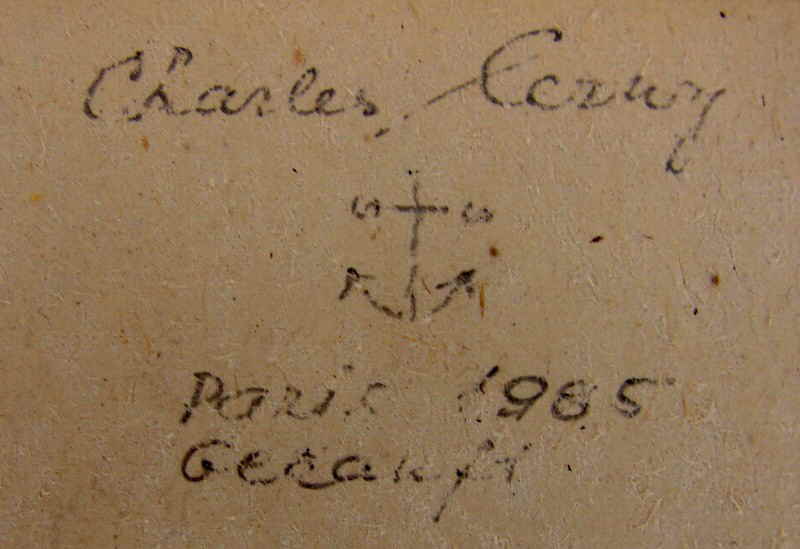 Charles Cerny
Paris 1965
Gekauft